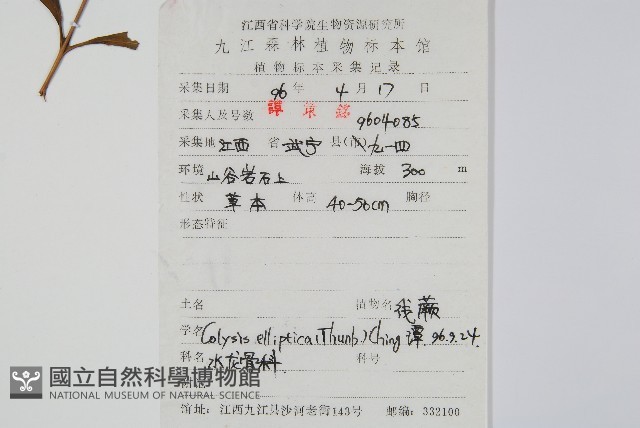 江西省科学院生物资源研究所
九江森林植物标本馆
植物标本采集记录
采集日期 96 年 4 月 17 日
采集人及号数 譚策銘 9604085
采集地 江西 省 武宁 县(市) 九一四
环境 山谷岩石上 海拔 300 m
性状 草本 体高 40-50cm 胸径
形态特征
土名 植物名 线蕨
学名 Colysis elliptica (Thunb.) Ching 谭 96.9.24.
科名 水龙骨科 科号
國立自然科學博物館
NATIONAL MUSEUM OF NATURAL SCIENCE
馆址: 江西九江县沙河老街143号 邮编: 332100